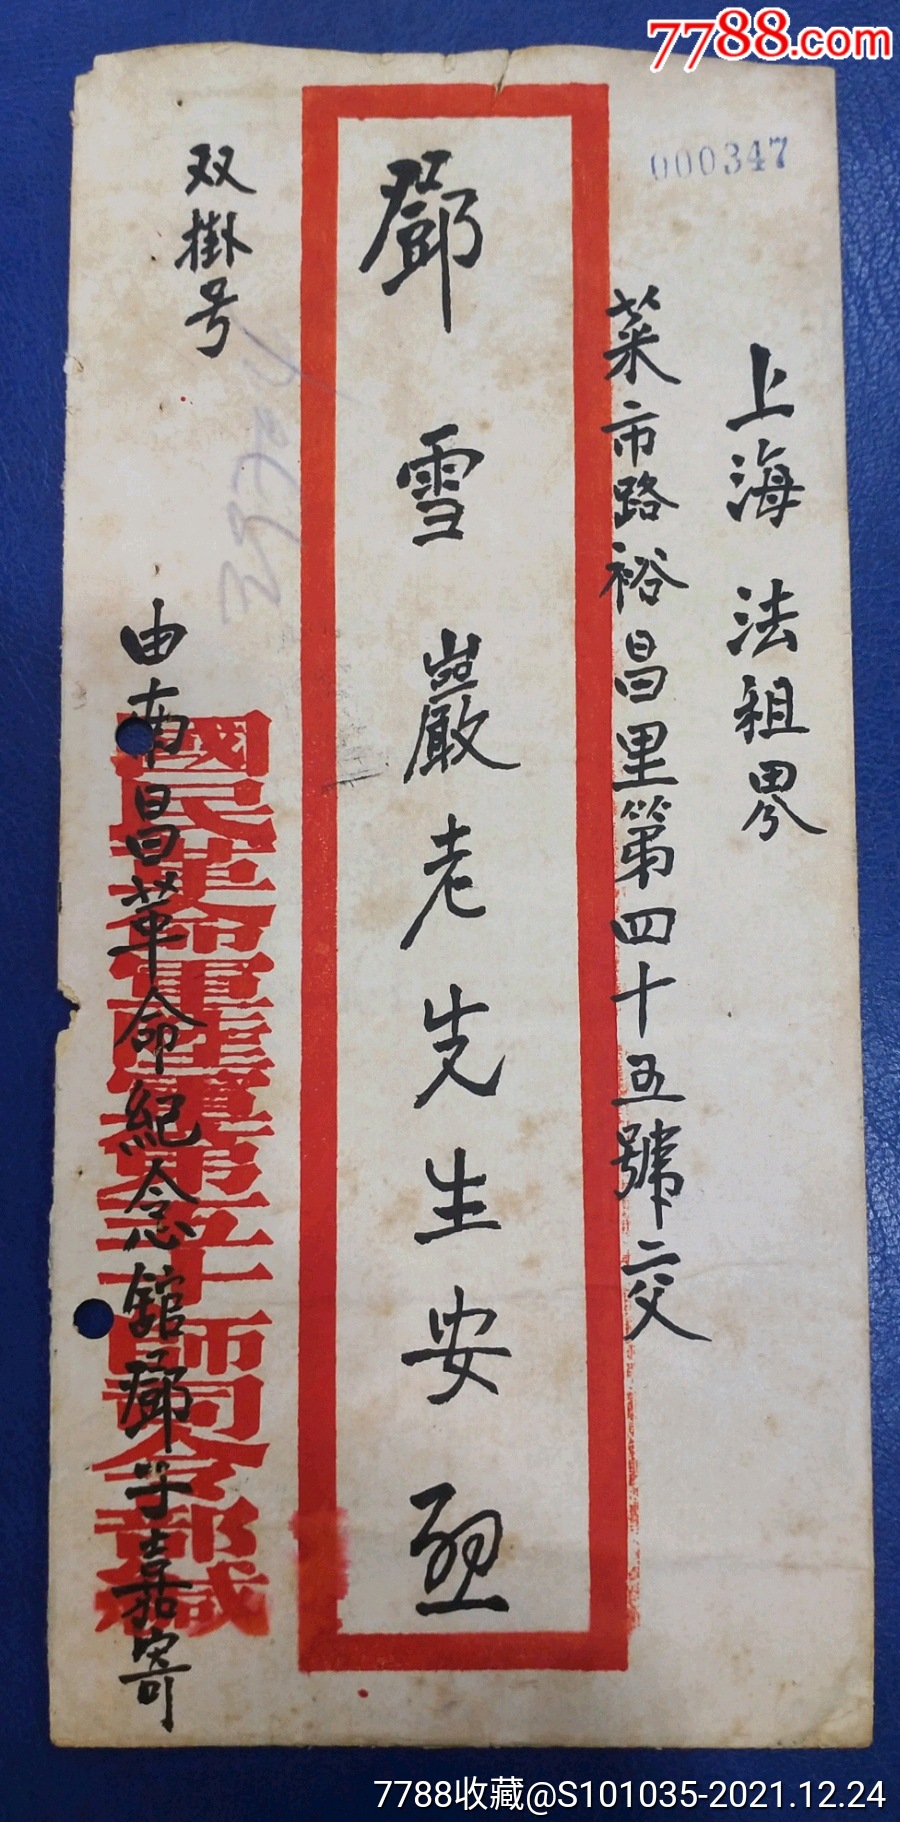 7788.com
000347
上海法租界
菜市路裕昌里第四十五號交
鄧雪巖老先生安
双掛号
由南昌革命紀念舘鄧子嘉寄
國民革命軍陸軍第五十師司令部緘
7788收藏@S101035-2021.12.24